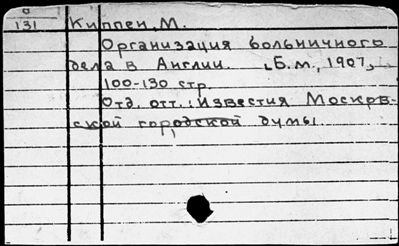 131 Киппен, М.
Организация больничного
дела в Англии. [Б.м., 1907,
100-130 стр.
Отд. отт.: Известия Москов-
ской городской думы.